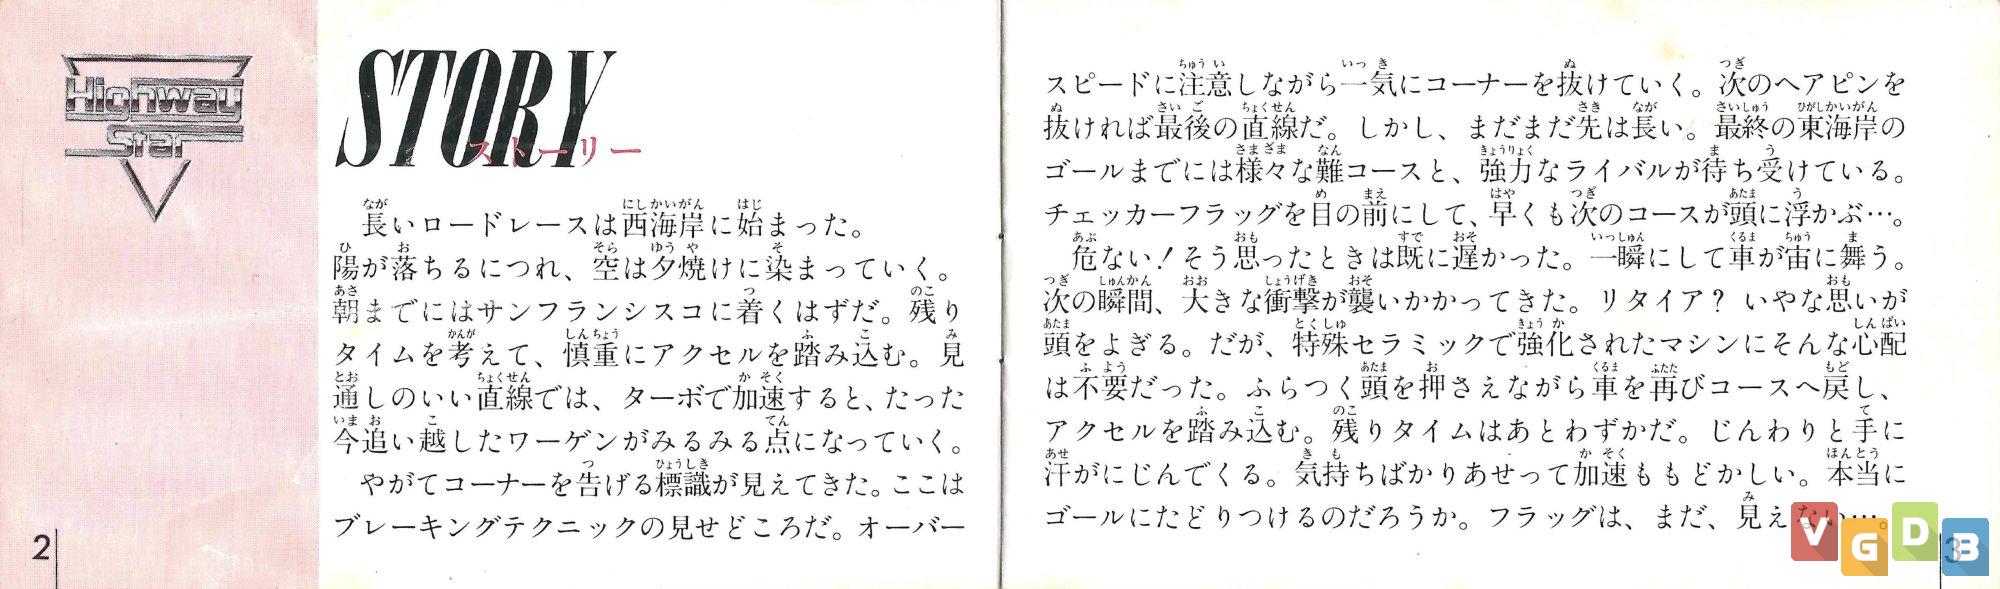 Highway
Star
STORY
ストーリー
長いロードレースは西海岸に始まった。
陽が落ちるにつれ、空は夕焼けに染まっていく。
朝までにはサンフランシスコに着くはずだ。残り
タイムを考えて、慎重にアクセルを踏み込む。見
通しのいい直線では、ターボで加速すると、たった
今追い越したワーゲンがみるみる点になっていく。
やがてコーナーを告げる標識が見えてきた。ここは
ブレーキングテクニックの見せどころだ。オーバー
2
スピードに注意しながら一気にコーナーを抜けていく。次のヘアピンを
抜ければ最後の直線だ。しかし、まだまだ先は長い。最終の東海岸の
ゴールまでには様々な難コースと、強力なライバルが待ち受けている。
チェッカーフラッグを目の前にして、早くも次のコースが頭に浮かぶ…。
危ない!そう思ったときは既に遅かった。一瞬にして車が宙に舞う。
次の瞬間、大きな衝撃が襲いかかってきた。リタイア? いやな思いが
頭をよぎる。だが、特殊セラミックで強化されたマシンにそんな心配
は不要だった。ふらつく頭を押さえながら車を再びコースへ戻し、
アクセルを踏み込む。残りタイムはあとわずかだ。じんわりと手に
汗がにじんでくる。気持ちばかりあせって加速ももどかしい。本当に
ゴールにたどりつけるのだろうか。フラッグは、まだ、見えない…。
3
VGDB